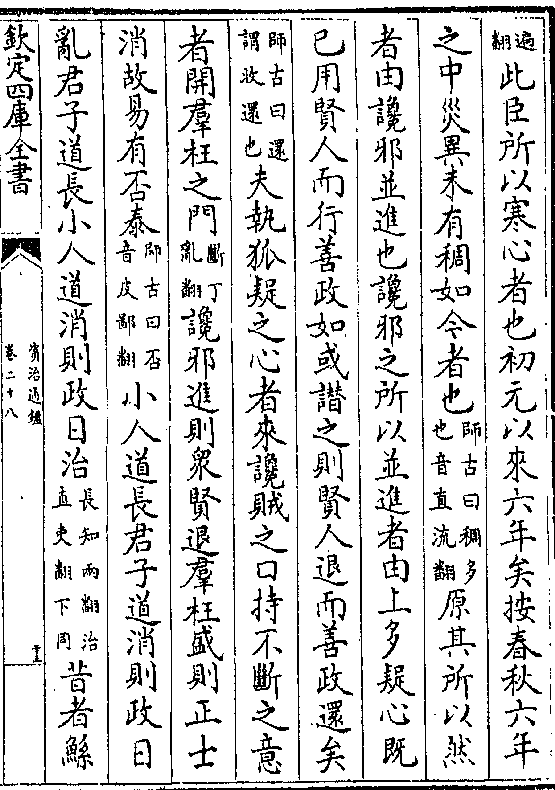 遍翻此臣所以寒心者也初元以來六年矣按春秋六年
之中災異未有稠如今者也師古曰稠多也音直流翻原其所以然
者由讒邪並進也讒邪之所以並進者由上多疑心既
已用賢人而行善政如或譖之則賢人退而善政還矣
師古曰還謂收還也夫執狐疑之心者來讒賊之口持不斷之意
者開羣枉之門斷丁亂翻讒邪進則衆賢退羣枉盛則正士
消故易有否泰師古曰否音皮鄙翻小人道長君子道消則政日
亂君子道長小人道消則政日治長知兩翻治直吏翻下同昔者鯀
欽定四庫全書
資治通鑑
卷二十八